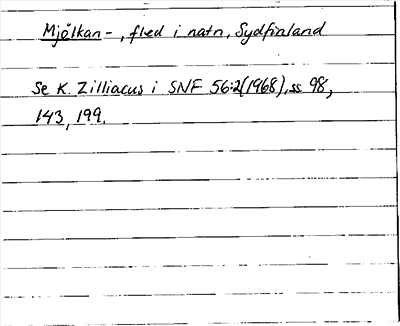 Mjölkan-, fled i natn, Sydfinland
Se K. Zilliacus i SNF 56:2(1968), ss 98,
143, 199.